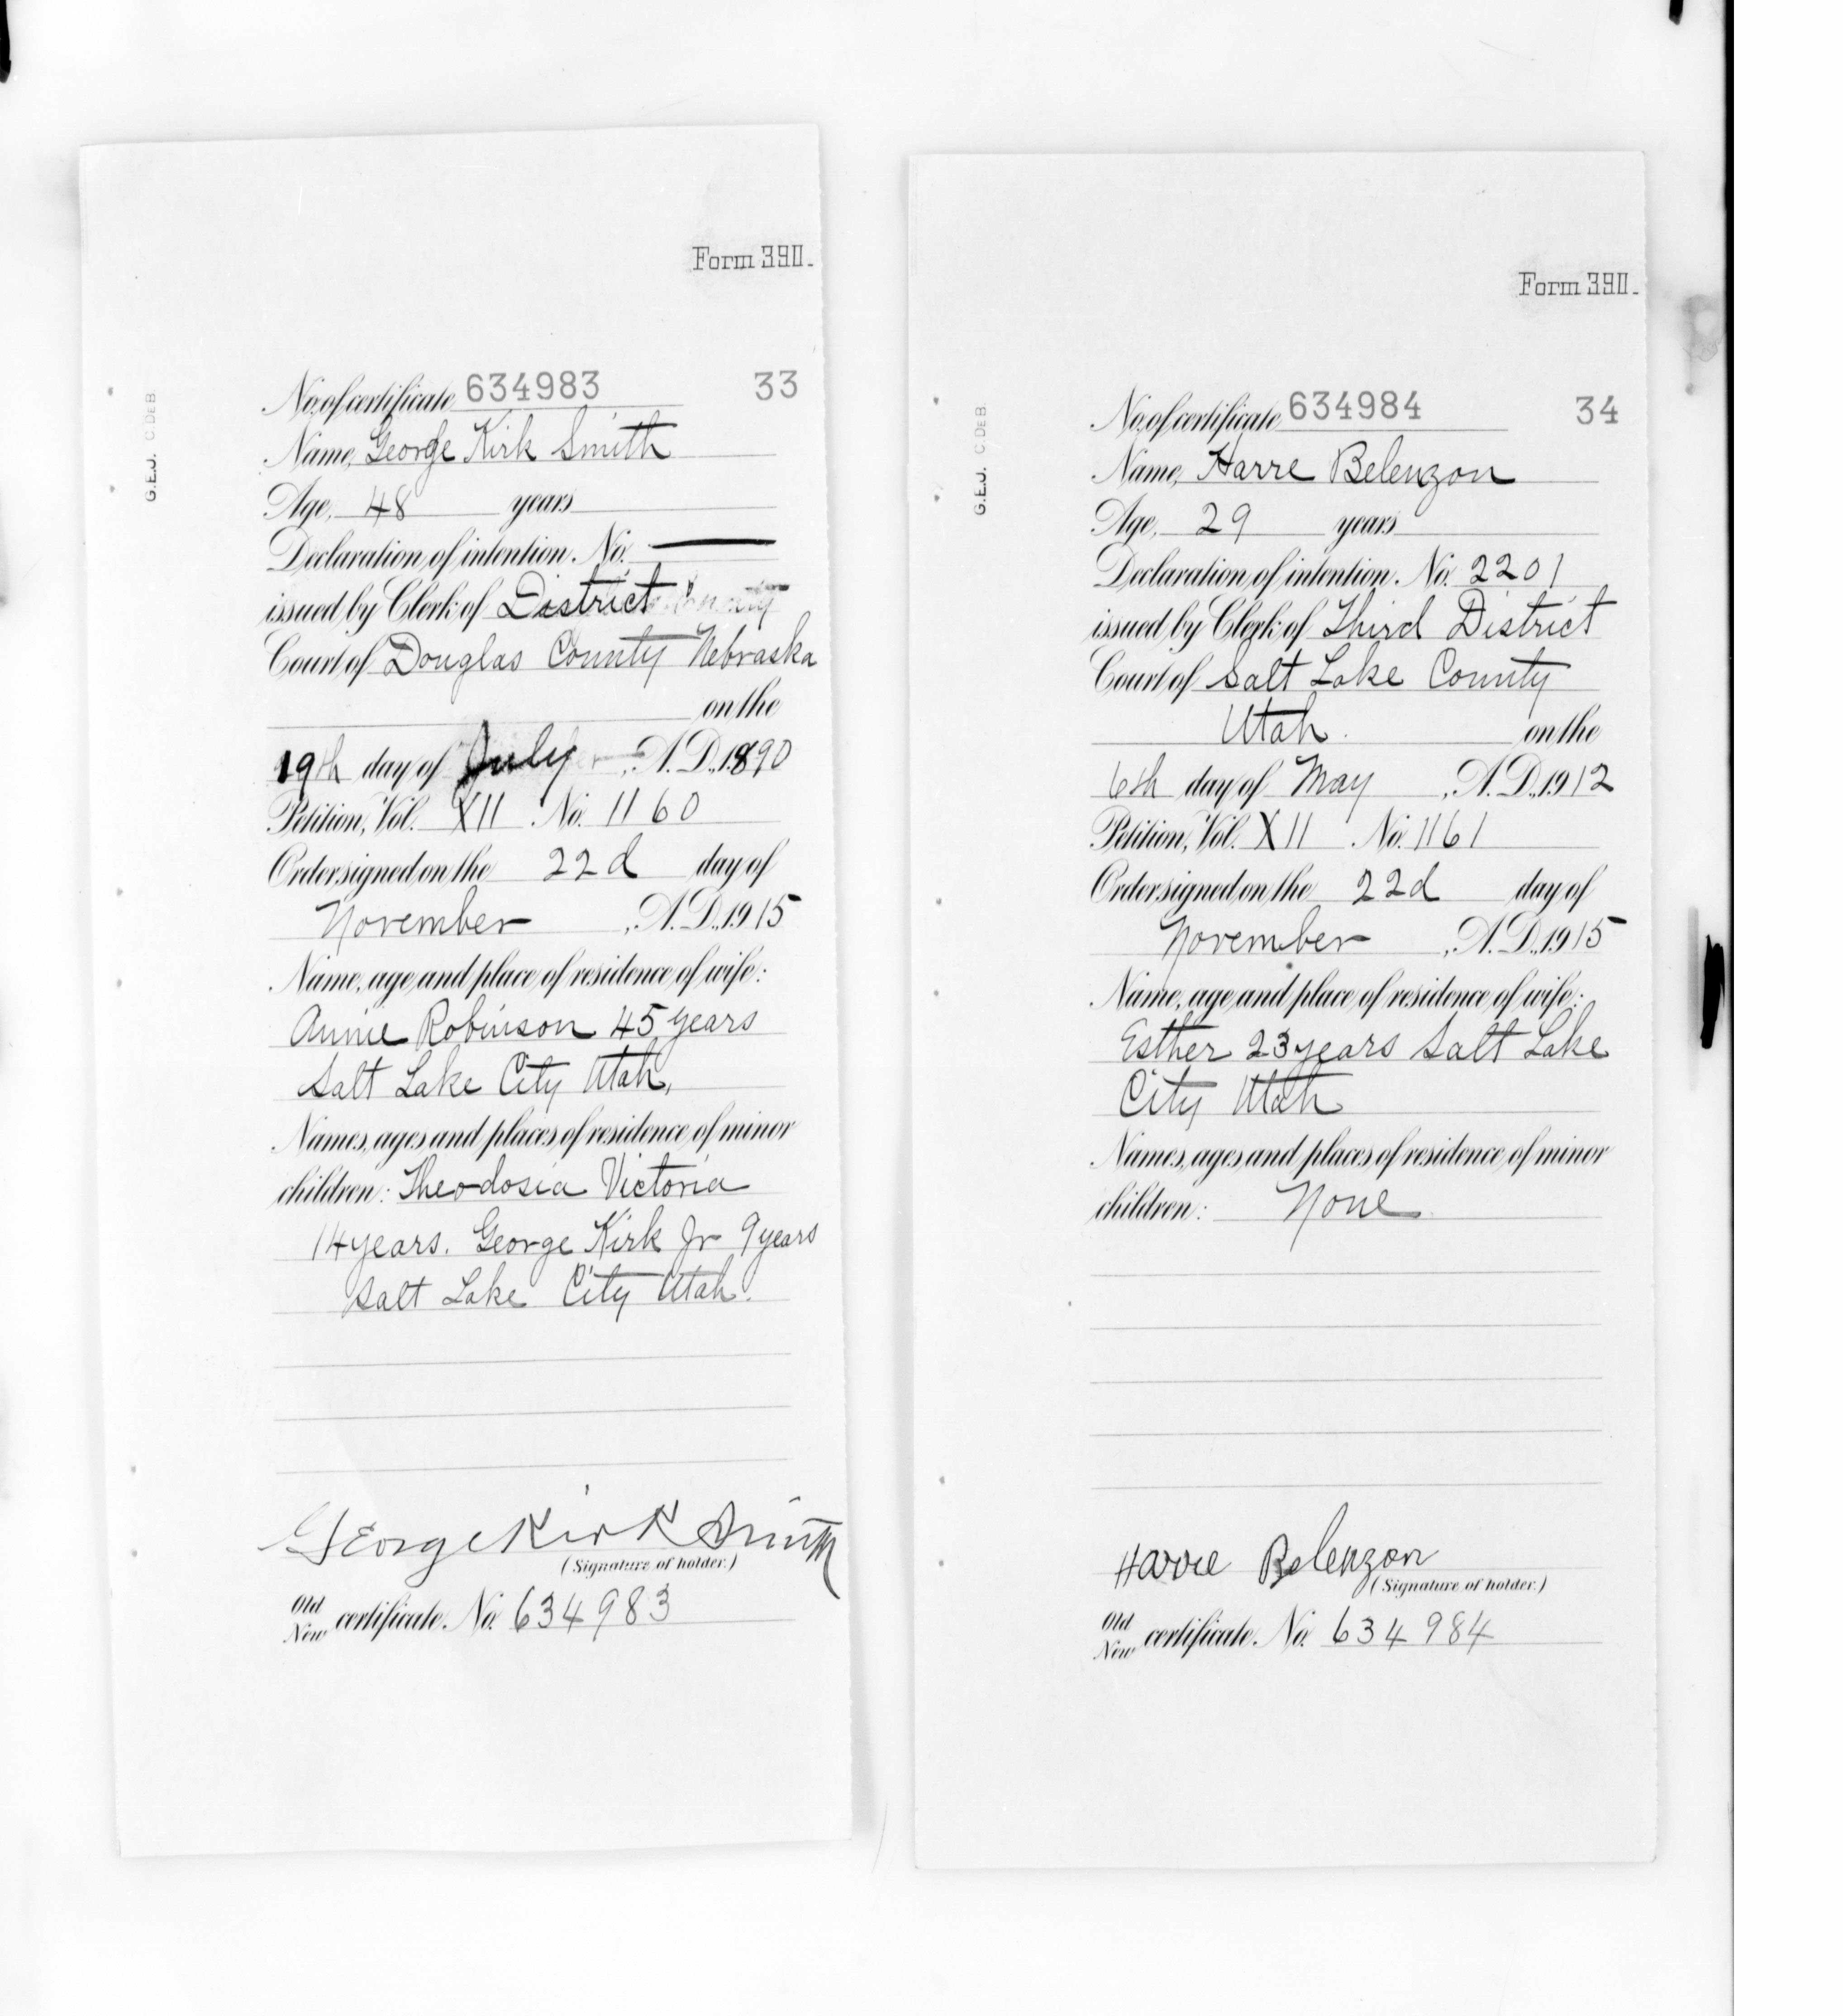 Form 390.
G.E.J. C. DE B.
No. of certificate, 634983 33
Name, George Kirk Smith
Age, 48 years
Declaration of intention, No. —
issued by Clerk of District
Court of Douglas County Nebraska
on the
19th day of July, A. D., 1890
Petition, Vol. XII No. 1160
Order signed on the 22d day of
November, A. D., 1915
Name, age and place of residence of wife:
Annie Robinson 45 years
Salt Lake City Utah,
Names, ages and places of residence of minor
children: Theodosia Victoria
14 years. George Kirk Jr 9 years
Salt Lake City Utah.
George Kirk Smith
(Signature of holder.)
Old
New certificate, No. 634983
Form 390.
G.E.J. C. DE B.
No. of certificate, 634984 34
Name, Harre Belenzon
Age, 29 years
Declaration of intention, No. 2201
issued by Clerk of Third District
Court of Salt Lake County
Utah. on the
6th day of May, A. D., 1912
Petition, Vol. XII No. 1161
Order signed on the 22d day of
November, A. D., 1915
Name, age and place of residence of wife:
Esther 23 years Salt Lake
City Utah
Names, ages and places of residence of minor
children: None
Harre Belenzon
(Signature of holder.)
Old
New certificate, No. 634984